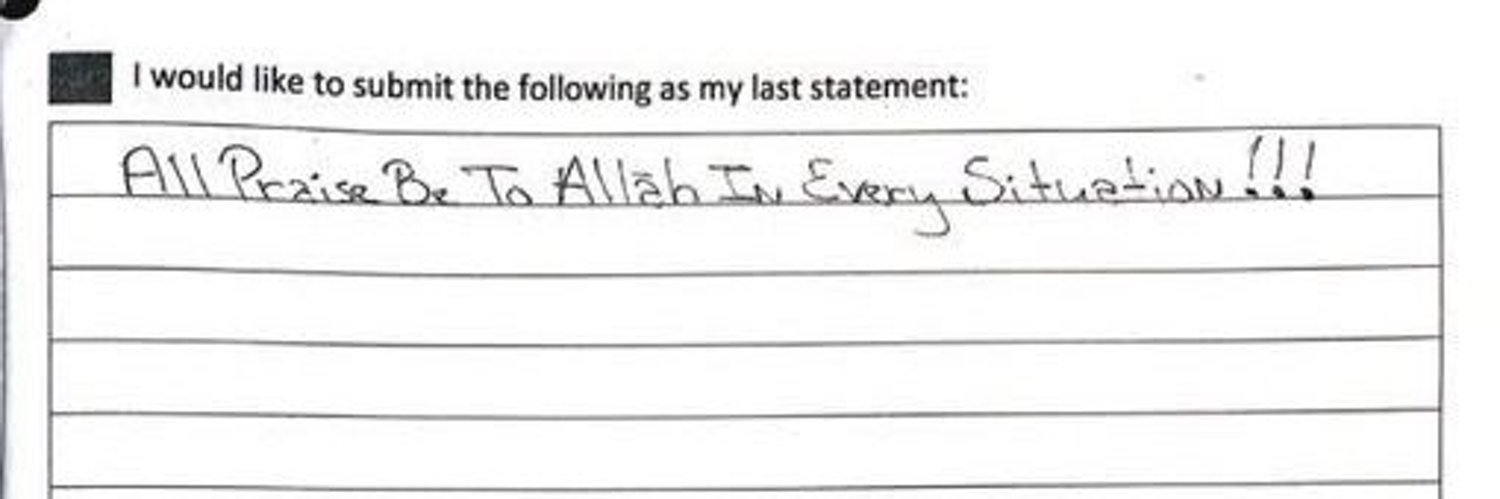 I would like to submit the following as my last statement:
All Praise Be To Allāh In Every Situation!!!